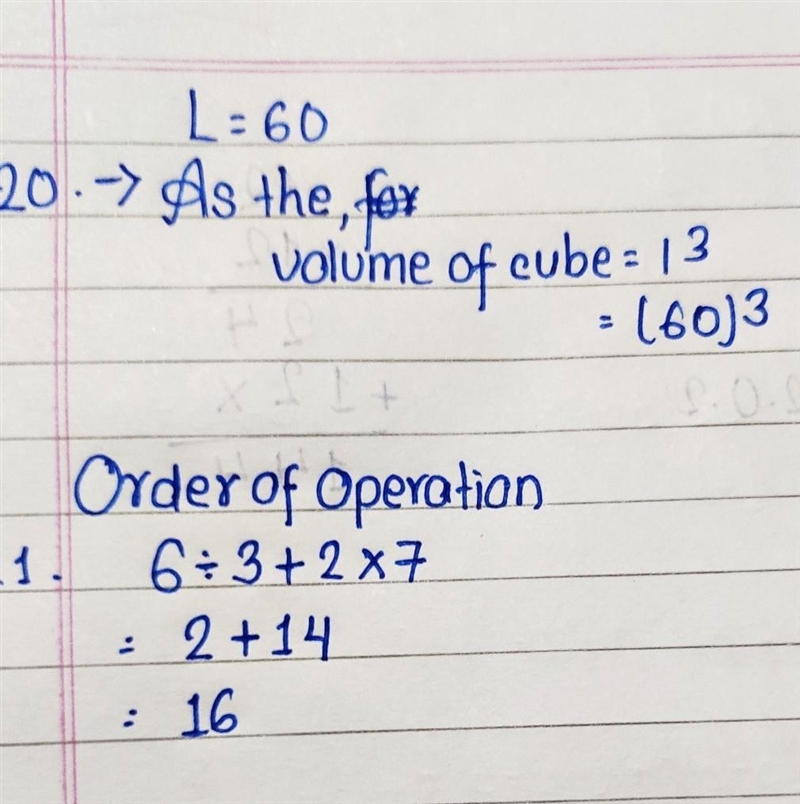 L = 60
20. → As the, for
volume of cube = l³
= (60)³
Order of Operation
1. 6 ÷ 3 + 2 × 7
= 2 + 14
= 16